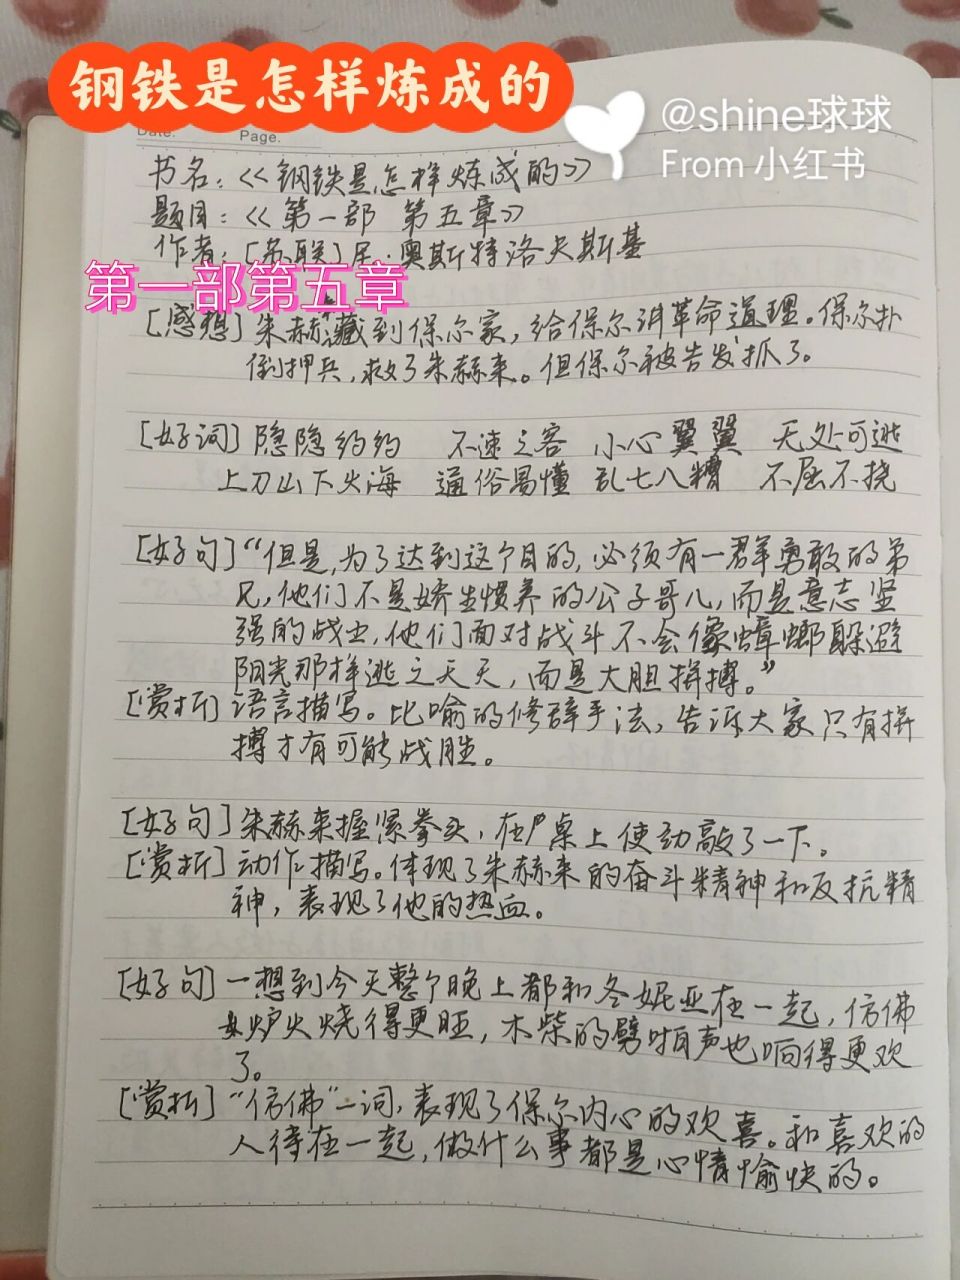 钢铁是怎样炼成的
@shine球球
From 小红书
Date.
Page.
书名：《钢铁是怎样炼成的》
题目：《第一部 第五章》
作者：[苏联]尼·奥斯特洛夫斯基
第一部第五章
[感想]朱赫来藏到保尔家，给保尔讲革命道理。保尔扑
倒押兵，救了朱赫来。但保尔被告发抓了。
[好词]隐隐约约 不速之客 小心翼翼 无处可逃
上刀山下火海 通俗易懂 乱七八糟 不屈不挠
[好句]“但是，为了达到这个目的，必须有一群勇敢的弟
兄，他们不是娇生惯养的公子哥儿，而是意志坚
强的战士，他们面对战斗不会像蟑螂躲避
阳光那样逃之夭夭，而是大胆拼搏。”
[赏析]语言描写。比喻的修辞手法，告诉大家只有拼
搏才有可能战胜。
[好句]朱赫来握紧拳头，在桌上使劲敲了一下。
[赏析]动作描写。体现了朱赫来的奋斗精神和反抗精
神，表现了他的热血。
[好句]一想到今天整个晚上都和冬妮亚在一起，仿佛
炉火烧得更旺，木柴的劈啪声也响得更欢
了。
[赏析]“仿佛”一词，表现了保尔内心的欢喜。和喜欢的
人待在一起，做什么事都是心情愉快的。